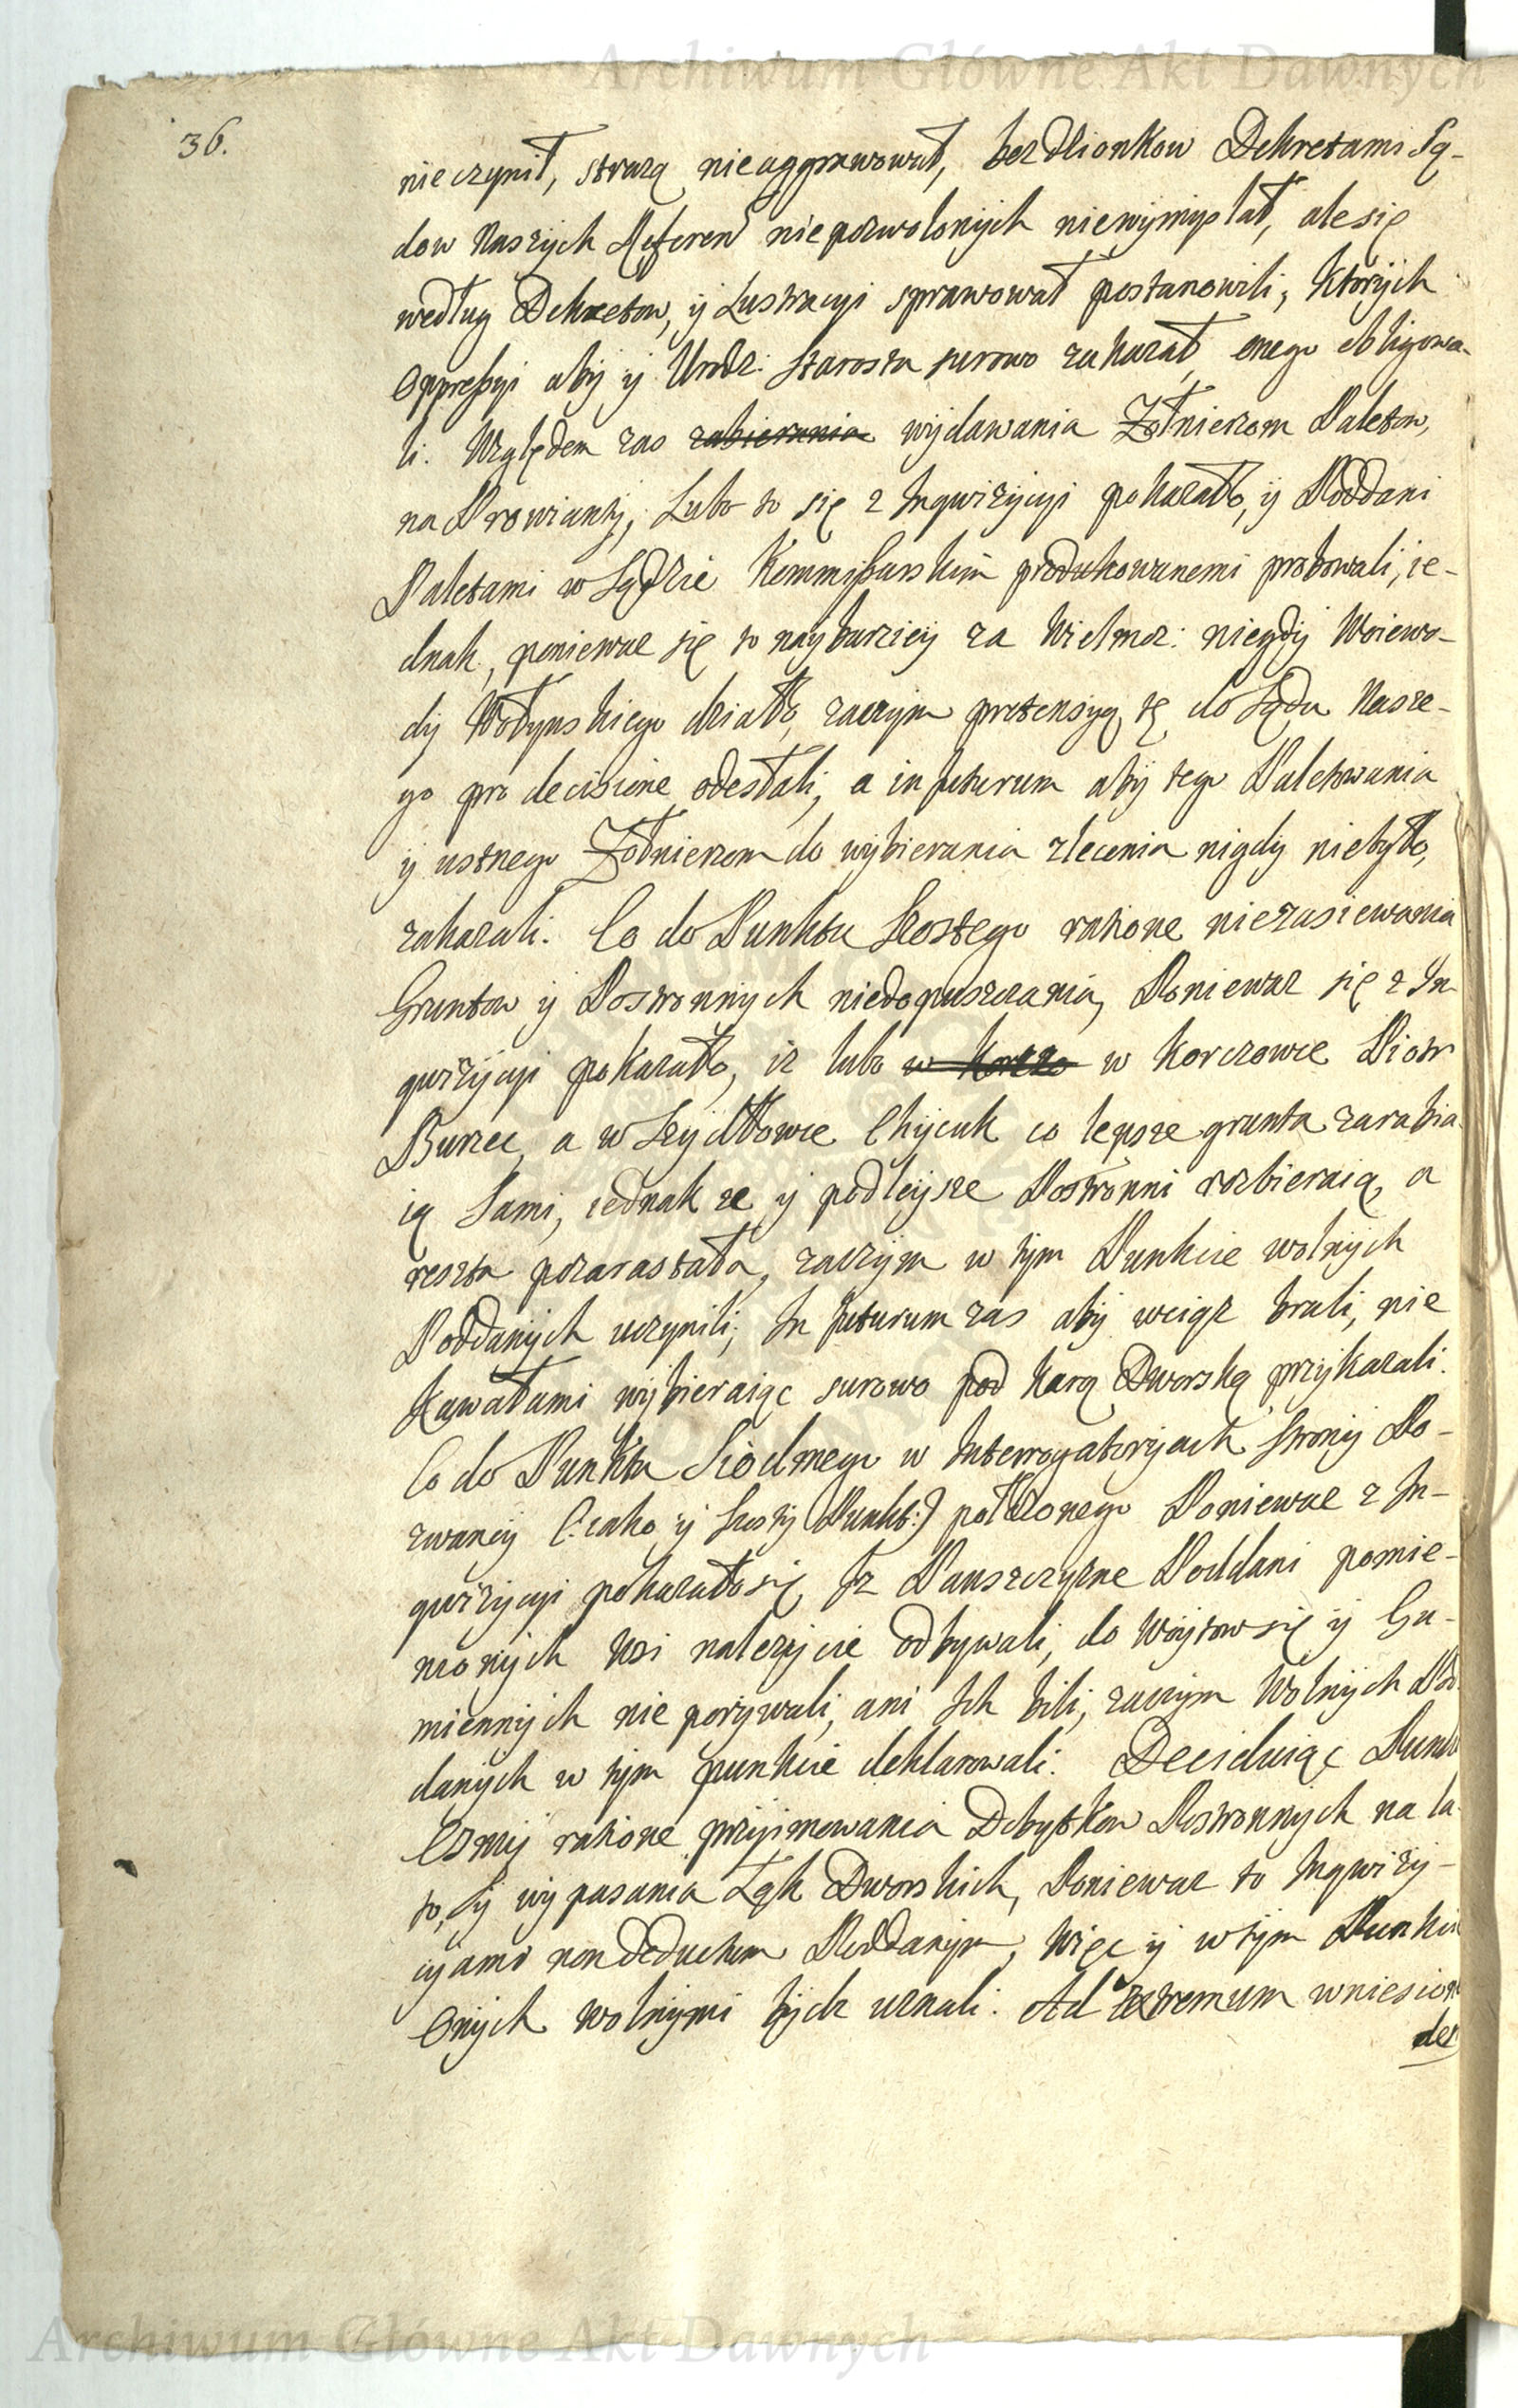 Archiwum Główne Akt Dawnych
36.
nie czynił, strażą nie aggrawował, bezdlionkow Dekretami Są-
dow Naszych Referen niepozwolonych niewymyślał, ale się
według Dekretow, ÿ Lustracyi sprawował postanowili, ktorych
Oppressyi aby ÿ Urodz: Starosta surowo zakazał, onego obligowa-
li. Względem zas zabierania wydawania Zołnierzom Paletow,
na Prowianty, Lubo to się z Inqwizycyi pokazało, ÿ Poddani
Paletami w Sądzie Kommissarskim produkowanemi probowali, ie-
dnak, poniewaz się to naybarziey za Wielmoz: niegdy Woiewo-
dy Wołynskiego działo, zaczym pretensyą tę do Sądu Nasze-
go pro decisione odesłali, a in futurum aby tego Paletowania
ÿ ustnego Zołnierzom do wybierania zlecenia nigdy niebyło,
zakazali. Co do Punktu Szostego ratione niezasiewania
Gruntow ÿ Postronnych niedopuszczania, Poniewaz się z In-
qwizycyi pokazało, iz lubo w Korczo w Korczowce Piotr
Burzec, a w Szydłowce Chycuk co lepsze grunta zarabia
ią Sami, iednak ze ÿ podleysze Postronni rozbieraią, a
reszta pozarastała, zaczym w tym Punkcie wolnych
Poddanych uczynili; In futurum zas aby wciąz brali, nie
Kawałami wybieraiąc surowo pod karą Dworską przykazali.
Co do Punktu Siodmego w Interrogatoryach Strony Po-
zwaney (:iako ÿ Szosty Punkt:) połozonego Poniewaz z In-
qwizycyi pokazało się Iz Panszczyzne Poddani pomie-
nionych Wsi nalezycie odbywali, do Woytow się ÿ Gu-
miennych nie porywali, ani Ich bili, zaczym Wolnych Pod
danych w tym punkcie deklarowali. Deciduiąc Punkt
Osmy ratione przyimowania Dobytkow Postronnych na la-
to, ÿ wypasania Łąk Dworskich, Poniewaz to Inqwizy-
cyami non deductum Poddanym, Więc ÿ w tym Punkcie
Onych wolnymi bydz uznali. Ad extremum wniesion
des
Archiwum Główne Akt Dawnych